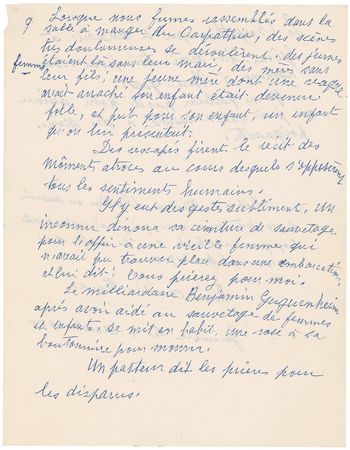 9 Lorsque nous fumes rassemblés dans la
salle à manger du Carpathia, des scènes
très douloureuses se déroulèrent. des jeunes
femmes étaient là sans leur mari, des mères sans
leur fils; une jeune mère dont une vague
avait arraché son enfant était devenue
folle, et prit pour son enfant, un enfant
qu'on lui présentait.
Des rescapés firent le récit des
moments atroces au cours desquels s'opposèrent
tous les sentiments humains.
Il y eut des gestes sublimes. Un
inconnu dénoua sa ceinture de sauvetage
pour l'offrir à une vieille femme qui
n'avait pu trouver place dans une embarcation,
et lui dit: Vous prierez pour moi.
Le milliardaire Benjamin Guguenheim
après avoir aidé au sauvetage de femmes
et enfants se mit en habit, une rose à sa
boutonnière pour mourir.
Un pasteur dit les prières pour
les disparus.